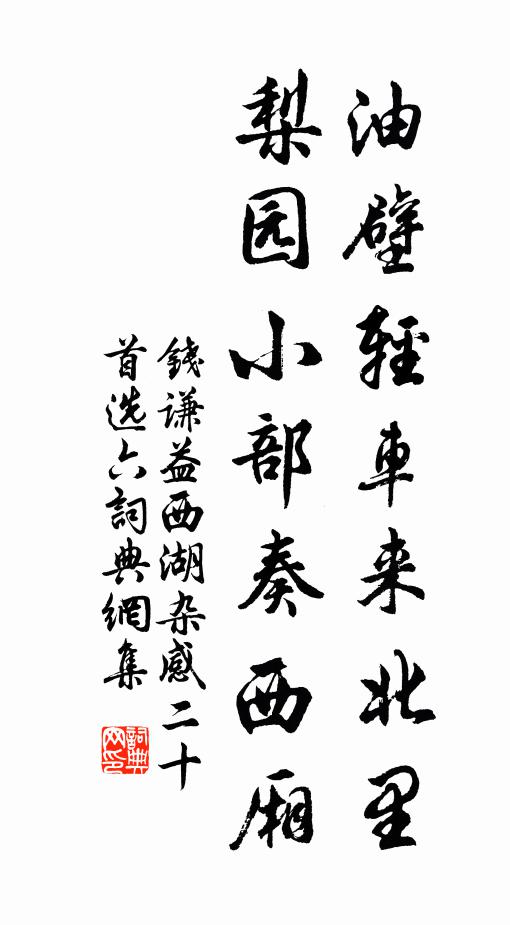 油壁輕車来北里
梨园小部奏西厢
錢谦益西湖杂感二十
首选六詞典網集
詞典网印